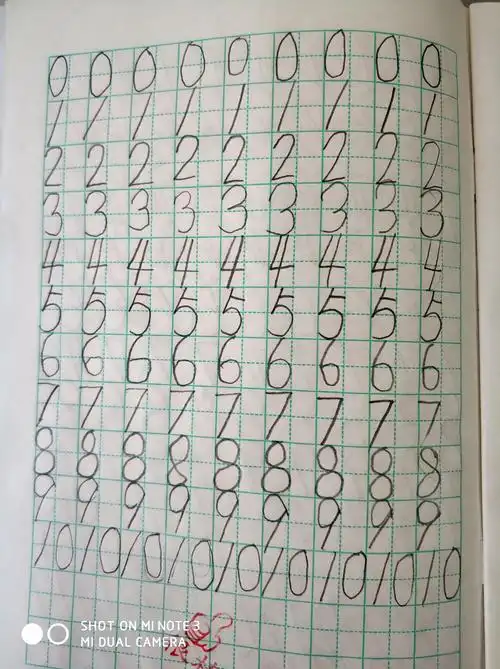 0 0 0 0 0 0 0 0 0
1 1 1 1 1 1 1 1 1
2 2 2 2 2 2 2 2 2
3 3 3 3 3 3 3 3 3
4 4 4 4 4 4 4 4 4
5 5 5 5 5 5 5 5 5
6 6 6 6 6 6 6 6 6
7 7 7 7 7 7 7 7 7
8 8 8 8 8 8 8 8 8
9 9 9 9 9 9 9 9 9
10 10 10 10 10 10 10 10 10
SHOT ON MI NOTE 3
MI DUAL CAMERA